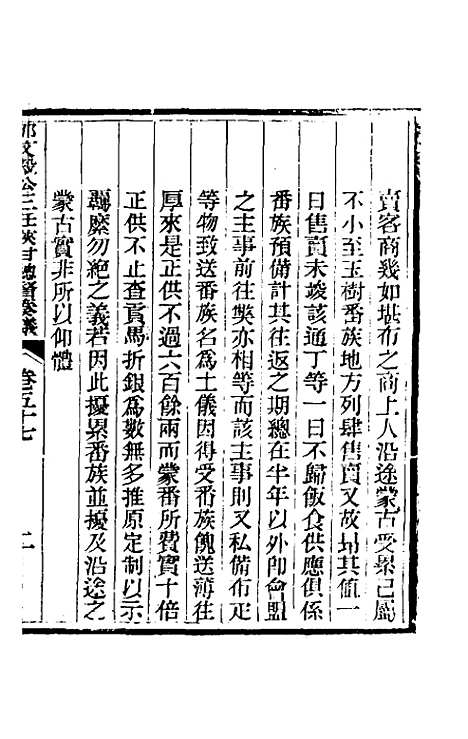 賣客商幾如堪布之商上人沿途蒙古受累已屬
不小至玉樹番族地方列肆售賣又故昂其值一
日售賣未竣該通丁等一日不歸飯食供應俱係
番族預備計其往返之期總在半年以外卽會盟
之主事前往獘亦相等而該主事則又私備布疋
等物致送番族名爲土儀因得受番族餽送薄往
厚來是正供不過六百餘兩而蒙番所費實十倍
正供不止查貢馬折銀爲數無多推原定制以示
羈縻勿絕之義若因此擾累番族並擾及沿途之
蒙古實非所以仰體
那文毅公二任陝甘總督奏議 卷五十七 二